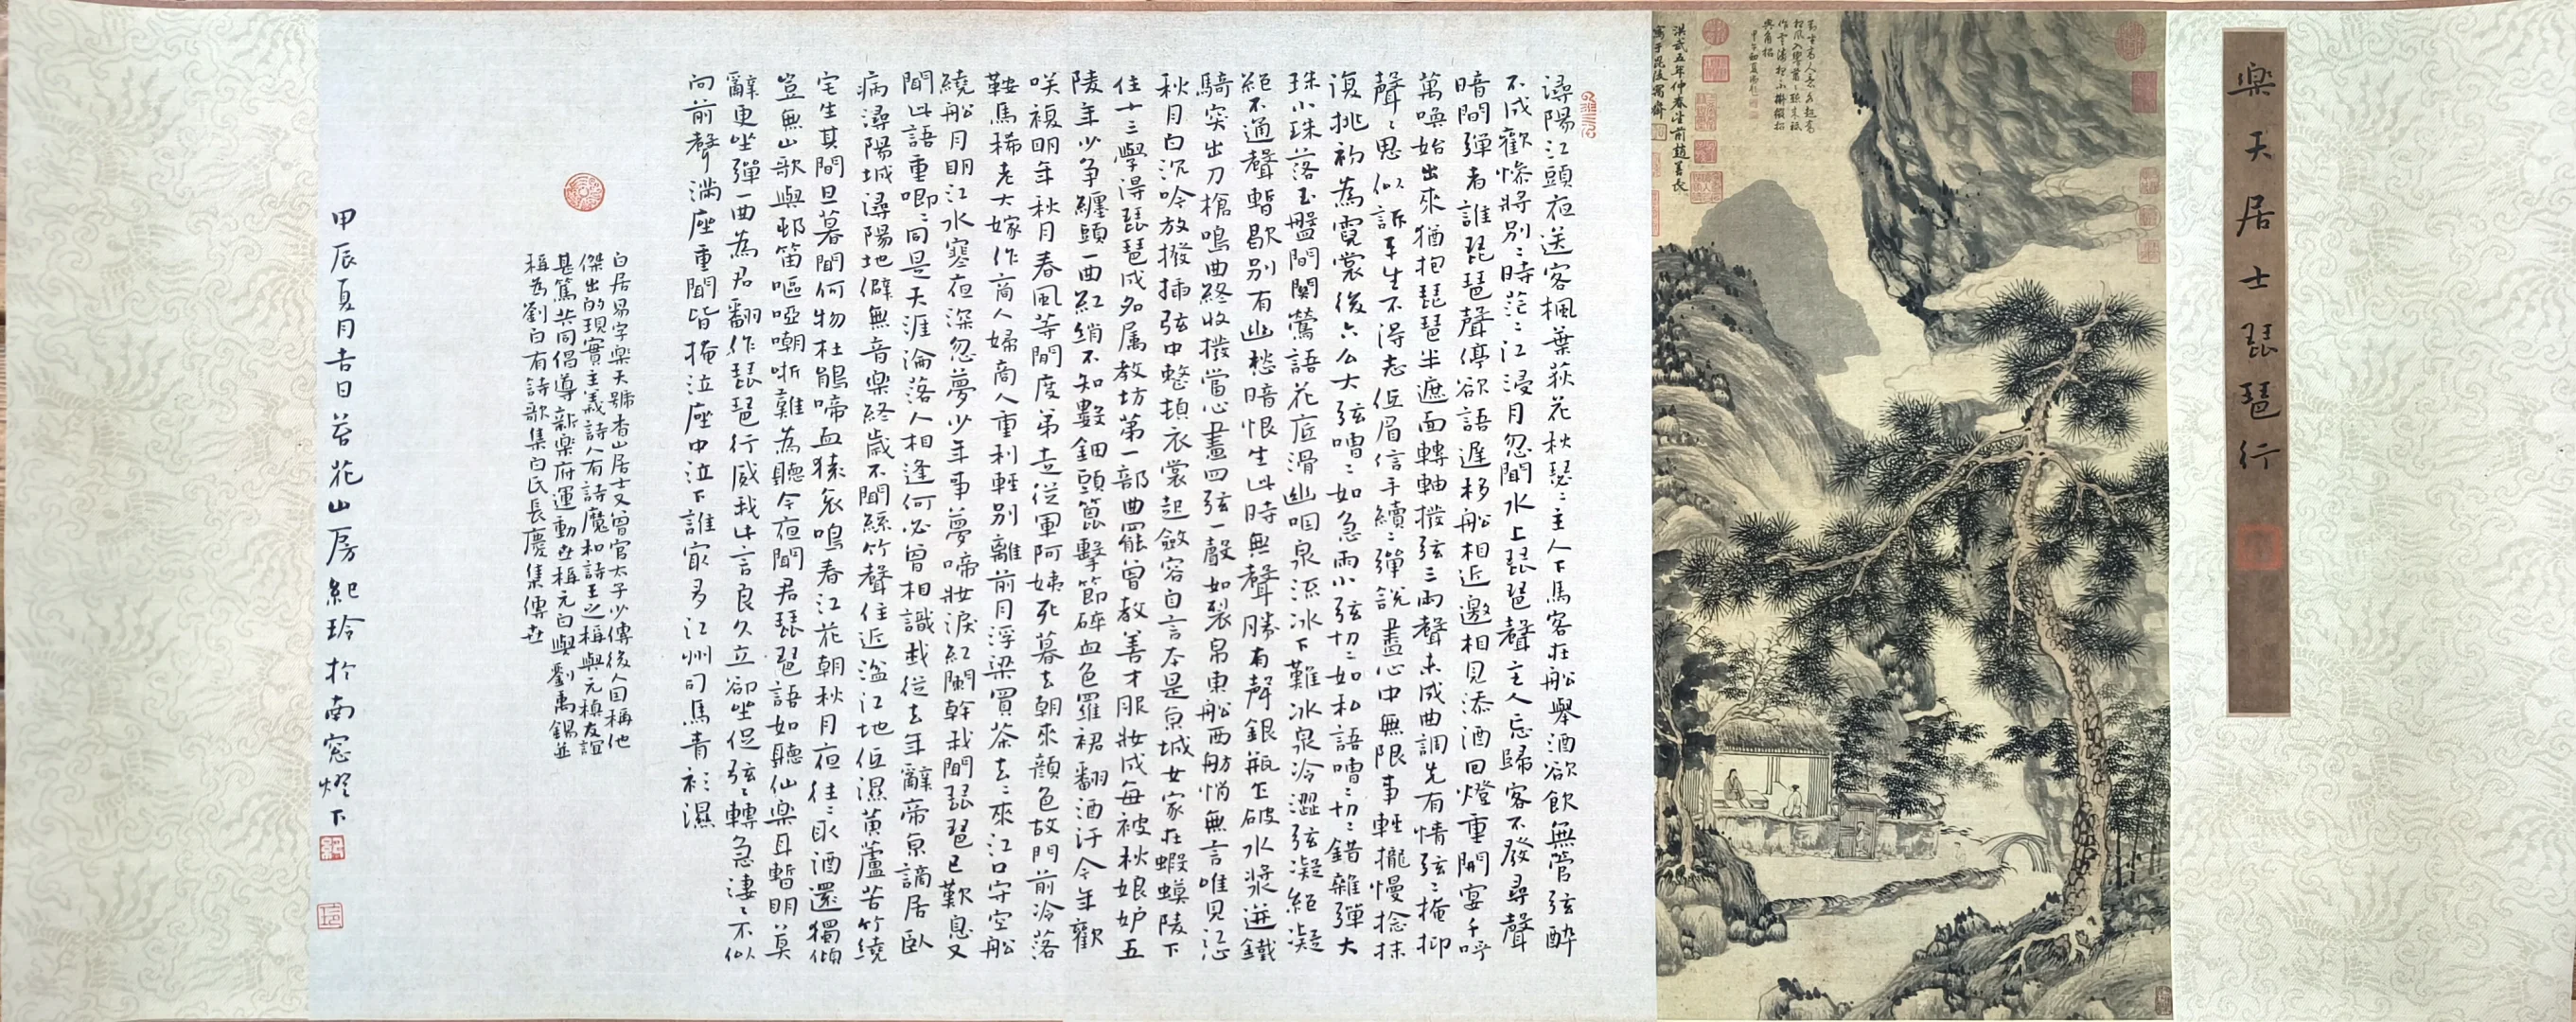 樂天居士琵琶行
洪武五年仲春坐前趙善長
寓于毘陵寓齋
潯陽江頭夜送客楓葉荻花秋瑟瑟主人下馬客在船舉酒欲飲無管弦醉
不成歡慘將別別時茫茫江浸月忽聞水上琵琶聲主人忘歸客不發尋聲
暗問彈者誰琵琶聲停欲語遲移船相近邀相見添酒回燈重開宴千呼
萬喚始出來猶抱琵琶半遮面轉軸撥弦三兩聲未成曲調先有情弦弦掩抑
聲聲思似訴平生不得志低眉信手續續彈說盡心中無限事輕攏慢捻抹
復挑初為霓裳後六么大弦嘈嘈如急雨小弦切切如私語嘈嘈切切錯雜彈大
珠小珠落玉盤間關鶯語花底滑幽咽泉流冰下難冰泉冷澀弦凝絕凝
絕不通聲暫歇別有幽愁暗恨生此時無聲勝有聲銀瓶乍破水漿迸鐵
騎突出刀槍鳴曲終收撥當心畫四弦一聲如裂帛東船西舫悄無言唯見江心
秋月白沉吟放撥插弦中整頓衣裳起斂容自言本是京城女家在蝦蟆陵下
住十三學得琵琶成名屬教坊第一部曲罷曾教善才服妝成每被秋娘妒五
陵年少爭纏頭一曲紅綃不知數鈿頭篦擊節碎血色羅裙翻酒汙今年歡
咲複明年秋月春風等閒度弟走從軍阿姨死暮去朝來顏色故門前冷落
鞍馬稀老大嫁作商人婦商人重利輕別離前月浮梁買茶去去來江口守空船
繞船月明江水寒夜深忽夢少年事夢啼妝淚紅闌幹我聞琵琶已歎息又
聞此語重唧唧同是天涯淪落人相逢何必曾相識我從去年辭帝京謫居臥
病潯陽城潯陽地僻無音樂終歲不聞絲竹聲住近湓江地低濕黃蘆苦竹繞
宅生其間旦暮聞何物杜鵑啼血猿哀鳴春江花朝秋月夜往往取酒還獨傾
豈無山歌與邨笛嘔啞嘲哳難為聽今夜聞君琵琶語如聽仙樂耳暫明莫
辭更坐彈一曲為君翻作琵琶行感我此言良久立卻坐促弦弦轉急淒淒不似
向前聲滿座重聞皆掩泣座中泣下誰最多江州司馬青衫濕
白居易字樂天號香山居士又曾官太子少傅後人因稱他
傑出的現實主義詩人有詩魔和詩王之稱與元稹友誼
甚篤共同倡導新樂府運動世稱元白與劉禹錫並
稱為劉白有詩歌集白氏長慶集傳世
甲辰夏月吉日苔花山房紀玲於南窓燈下